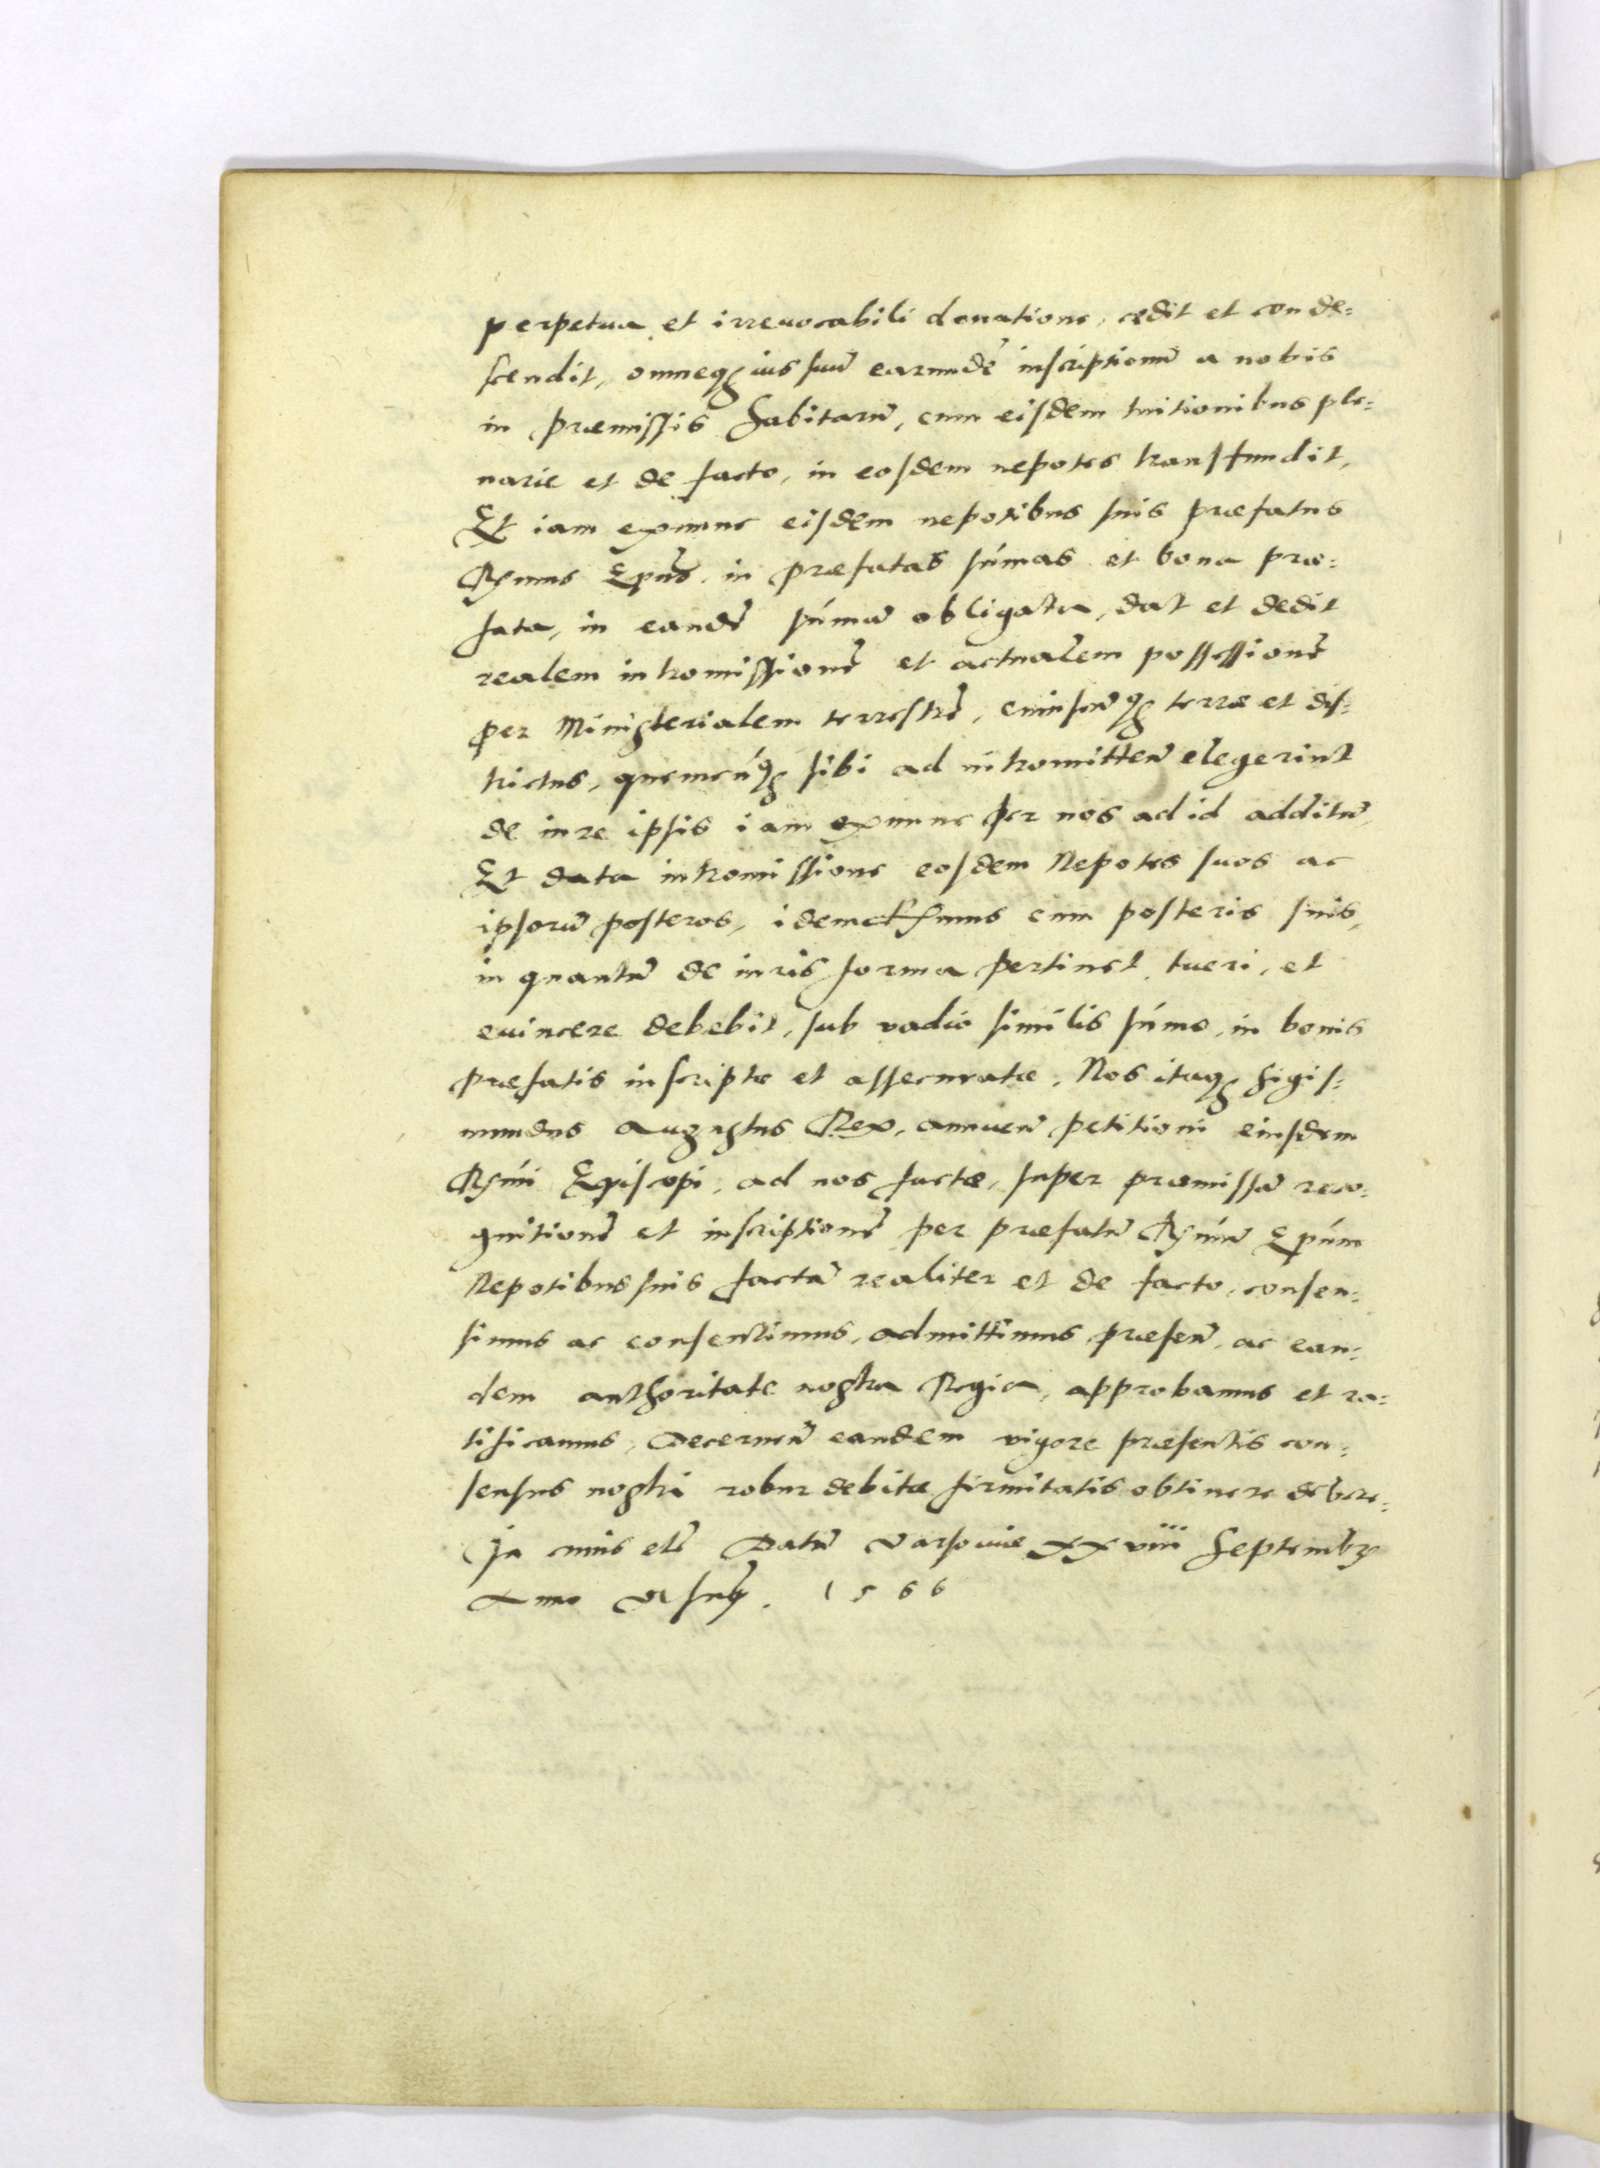 perpetua et irreuocabili donatione, cędit et conde=
scendit, omneq3 ius suũ earundẽ inscriptionũ a nobis
in præmissis habitarũ, cum eisdem tuitionibus ple=
narie et de facto, in eosdem nepotes transfundit,
Et iam exnunc eisdem nepotibus suis præfatus
Rs̃mus Ep̃us, in præfatas sũmas et bona præ=
fata, in eandẽ sũmã obligata, dat et dedit
realem intromissionẽ et actualem possessionẽ
per Ministerialem terrestrẽ, cuiuscũq3 terræ et dis=
trictus, quemcũq3 sibi ad intromittenᷠ elegerint
de iure ipsis iam exnunc per nos ad id additũ,
Et data intromissione eosdem Nepotes suos ac
ipsorũ posteros, idem Rs̃mus cum posteris suis,
in quantũ de iuris forma pertinet, tueri, et
euincere debebit, sub vadio similis sũmæ, in bonis
præfatis inscriptæ et assecuratæ. Nos itaq3 Sigis=
mundus Augustus Rex, annuenᷠ petitioni eiusdem
Rs̃mi Episcopi, ad nos factæ, super præmissã reco=
gnitionẽ et inscriptionẽ per præfatũ Rs̃mũ Ep̃um
Nepotibus suis factã realiter et de facto, consen=
simus ac consentimus, admittimus præsenᷠ, ac ean=
dem authoritate nostra Regia, approbamus et ra=
tificamus, Decernenᷠ eandem vigore præsentis con=
sensus nostri robur debitæ firmitatis obtinere debere.
In cuius etc̃ Datũ Varsouiæ xxviii Septembr
Anno Vt supᷓ. 1566